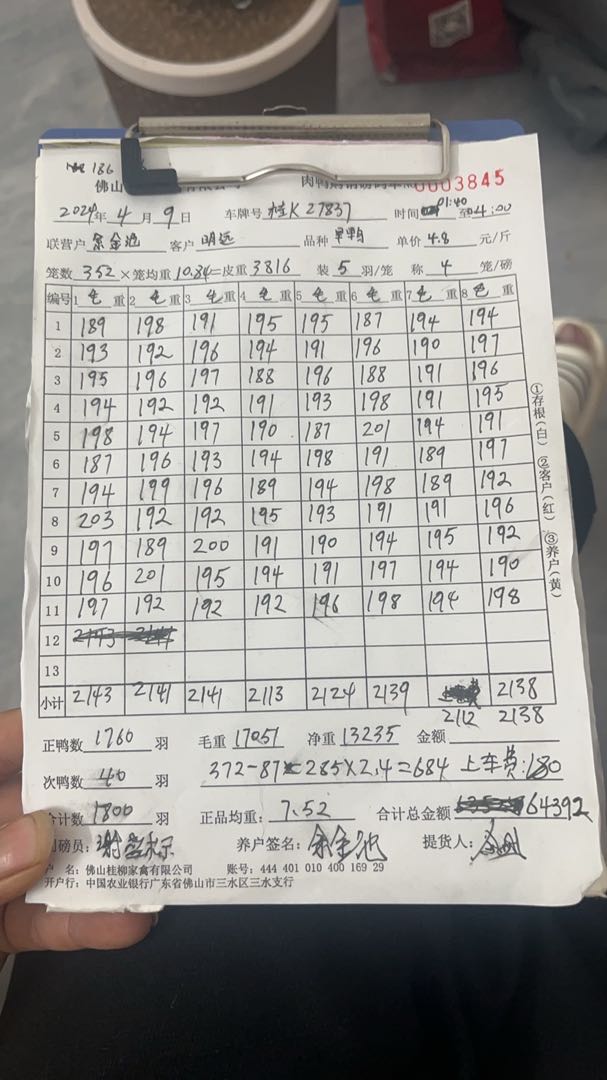 186
佛山
0003845
2024年 4月 9日 车牌号 桂K27837 时间 01:40 至04:00
联营户 余金池 客户 明远 品种 旱鸭 单价 4.8 元/斤
笼数 352×笼均重 10.84=皮重 3816 装 5 羽/笼 称 4 笼/磅
编号 1 毛 重 2 毛 重 3 毛 重 4 毛 重 5 毛 重 6 毛 重 7 毛 重 8 毛 重
1 189 198 191 195 195 187 194 194
2 193 192 196 194 191 196 190 197
3 195 196 197 188 196 188 191 196
4 194 192 192 191 193 198 191 195
5 198 194 197 190 187 201 194 191
6 187 196 193 194 198 191 189 197
7 194 199 196 189 194 198 189 192
8 203 192 192 195 193 191 191 196
9 197 189 200 191 190 194 195 192
10 196 201 195 194 191 197 194 190
11 197 192 192 192 196 198 194 198
12 2143 2141
13
小计 2143 2141 2141 2113 2124 2139 2138
2112 2138
正鸭数 1760 羽 毛重 17051 净重 13235 金额
次鸭数 40 羽 372-87=285×2.4=684 上车费:180
合计数 1800 羽 正品均重: 7.52 合计总金额 64392
磅员: 养户签名: 余金池 提货人:
户 名: 佛山桂柳家禽有限公司 账号: 444 401 010 400 169 29
开户行: 中国农业银行广东省佛山市三水区三水支行
①存根(白) ②客户(红) ③养户(黄)